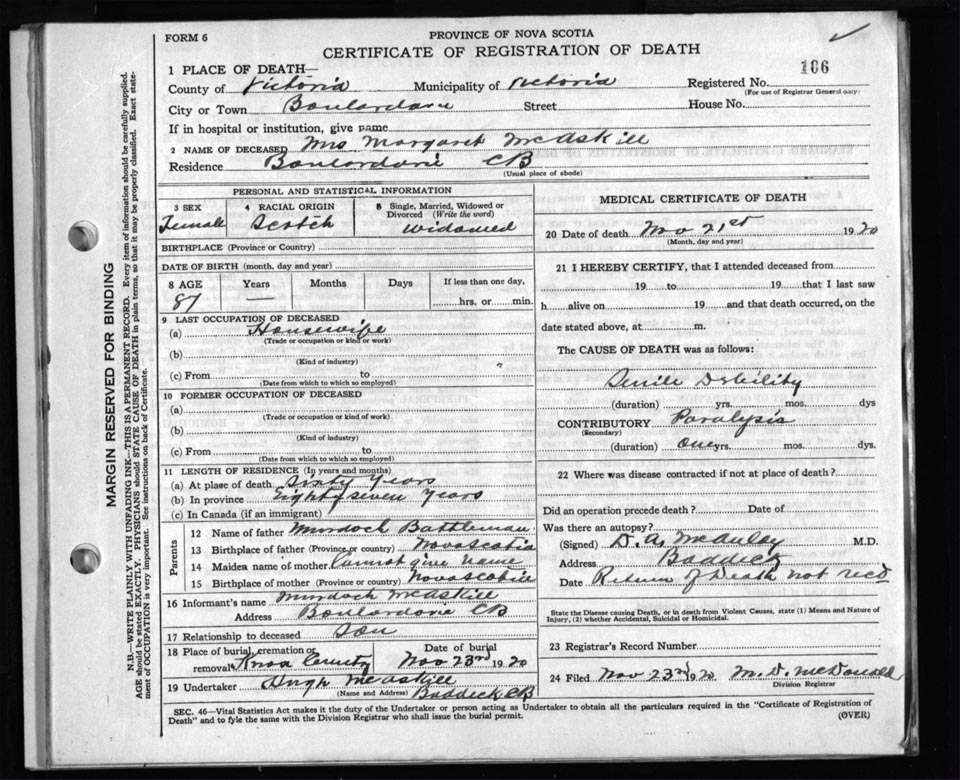 FORM 6
PROVINCE OF NOVA SCOTIA
CERTIFICATE OF REGISTRATION OF DEATH
106
1 PLACE OF DEATH—
County of Victoria Municipality of Victoria Registered No.
(For use of Registrar General only)
City or Town Boulardarie Street House No.
If in hospital or institution, give name
2 NAME OF DECEASED Mrs Margaret McAskill
Residence Boulardarie CB
(Usual place of abode)
PERSONAL AND STATISTICAL INFORMATION
3 SEX Female
4 RACIAL ORIGIN Scotch
5 Single, Married, Widowed or Divorced (Write the word) Widowed
BIRTHPLACE (Province or Country)
DATE OF BIRTH (month, day and year)
8 AGE Years Months Days If less than one day,
87 — hrs. or min.
9 LAST OCCUPATION OF DECEASED
(a) Housewife
(Trade or occupation or kind or work)
(b)
(Kind of industry)
(c) From to
(Date from which to which so employed)
10 FORMER OCCUPATION OF DECEASED
(a)
(Trade or occupation or kind of work)
(b)
(Kind of industry)
(c) From to
(Date from which to which so employed)
11 LENGTH OF RESIDENCE (In years and months)
(a) At place of death Sixty Years
(b) In province Eighty seven Years
(c) In Canada (if an immigrant)
Parents
12 Name of father Murdoch
13 Birthplace of father (Province or country) Nova Scotia
14 Maiden name of mother Cannot give name
15 Birthplace of mother (Province or country) Nova Scotia
16 Informant's name Murdoch McAskill
Address Boulardarie CB
17 Relationship to deceased Son
18 Place of burial, cremation or removal Knox County Date of burial Nov 23rd 1920
19 Undertaker Hugh McAskill
(Name and Address) Baddeck CB
MEDICAL CERTIFICATE OF DEATH
20 Date of death Nov 21st 1920
(Month, day and year)
21 I HEREBY CERTIFY, that I attended deceased from
19 to 19 that I last saw
h alive on 19 and that death occurred, on the
date stated above, at m.
The CAUSE OF DEATH was as follows:
Senile Debility
(duration) yrs. mos. dys
CONTRIBUTORY Paralysis
(Secondary)
(duration) One yrs. mos. dys.
22 Where was disease contracted if not at place of death?
Did an operation precede death? Date of
Was there an autopsy?
(Signed) D. A. McAuley M.D.
Address Baddeck
Date Return of Death not recd
State the Disease causing Death, or in death from Violent Causes, state (1) Means and Nature of
Injury, (2) whether Accidental, Suicidal or Homicidal.
23 Registrar's Record Number
24 Filed Nov 23rd 1920 M. D. McDonald
Division Registrar
SEC. 46—Vital Statistics Act makes it the duty of the Undertaker or person acting as Undertaker to obtain all the particulars required in the "Certificate of Registration of
Death" and to fyle the same with the Division Registrar who shall issue the burial permit.
(OVER)
MARGIN RESERVED FOR BINDING
N.B.—WRITE PLAINLY WITH UNFADING INK—THIS IS A PERMANENT RECORD. Every item of information should be carefully supplied.
AGE should be stated EXACTLY. PHYSICIANS should STATE CAUSE OF DEATH in plain terms, so that it may be properly classified. Exact state-
ment of OCCUPATION is very important. See instructions on back of Certificate.